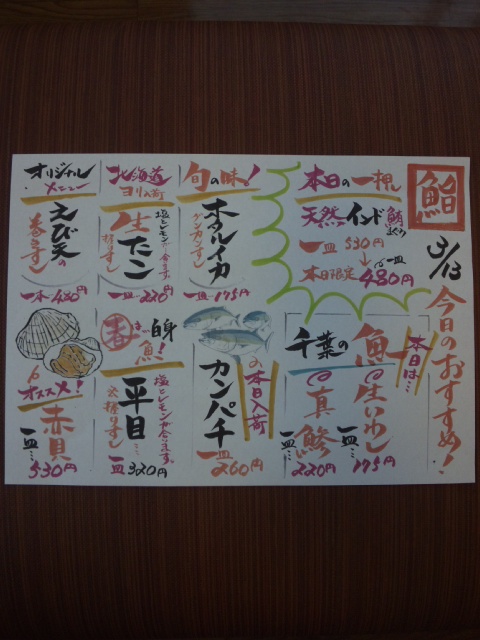 鮨
3/13
今日のおすすめ!
本日の一押し
天然インド鮪
まぐろ
一皿 530円
↓
本日限定 一皿 480円
旬の味!
ホタルイカ
グンカンずし
一皿 175円
北海道
ヨリ入荷
生たこ
握りずし
塩とレモンが合います
一皿 220円
オリジナル
メニュー
えび天の
巻きずし
一本 480円
本日は…
千葉の魚
生いわし
一皿… 175円
真鯵
一皿… 220円
本日入荷の
カンパチ
一皿 260円
春は…白身
魚!
平目…
大握りずし
塩とレモンが合います。
一皿 320円
オススメ!
赤貝
一皿… 530円